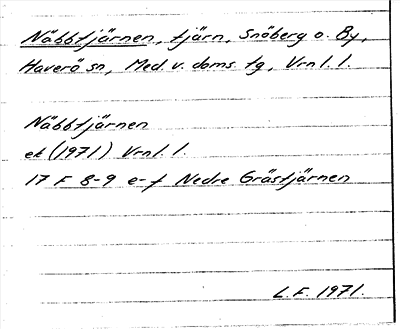 Näbbtjärnen, tjärn, Snöberg o. By,
Haverö sn, Med. v. doms. tg, Vrnl. l.
Näbbtjärnen
ek (1971) Vrnl. l.
17 F 8-9 e-f Nedre Grästjärnen
L.F. 1971.